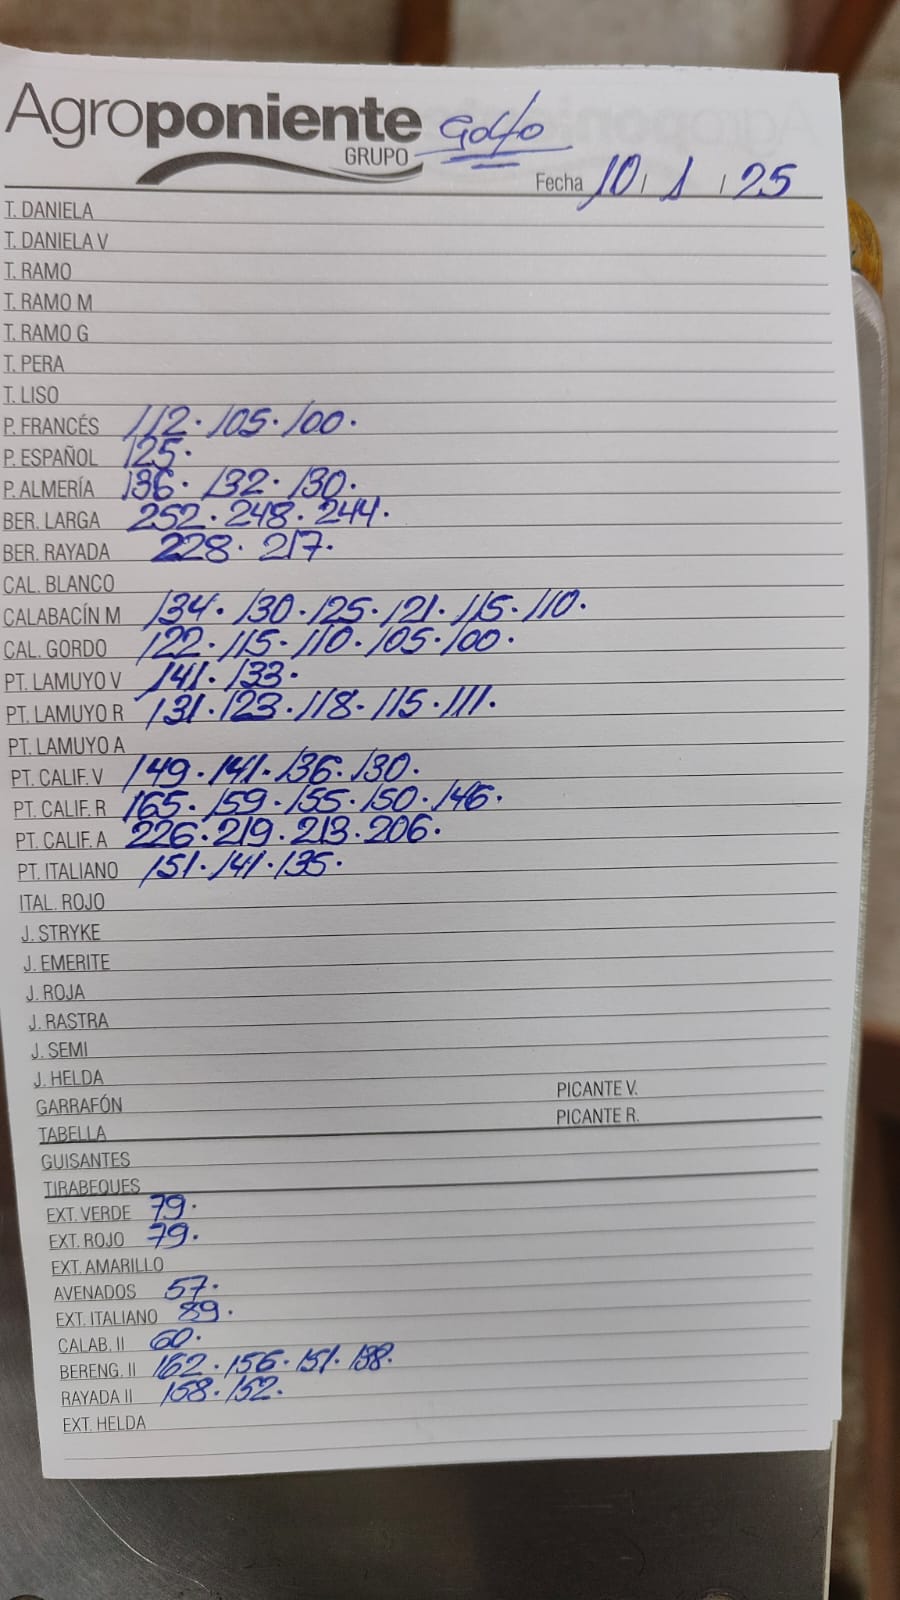 Agroponiente Golfo
GRUPO
Fecha 10 / 1 / 25
T. DANIELA
T. DANIELA V
T. RAMO
T. RAMO M
T. RAMO G
T. PERA
T. LISO
P. FRANCÉS 112. 105. 100.
P. ESPAÑOL 125.
P. ALMERÍA 136. 132. 130.
BER. LARGA 252. 248. 244.
BER. RAYADA 228. 217.
CAL. BLANCO
CALABACÍN M 134. 130. 125. 121. 115. 110.
CAL. GORDO 122. 115. 110. 105. 100.
PT. LAMUYO V 141. 133.
PT. LAMUYO R 131. 123. 118. 115. 111.
PT. LAMUYO A
PT. CALIF. V 149. 141. 136. 130.
PT. CALIF. R 165. 159. 155. 150. 146.
PT. CALIF. A 226. 219. 213. 206.
PT. ITALIANO 151. 141. 135.
ITAL. ROJO
J. STRYKE
J. EMERITE
J. ROJA
J. RASTRA
J. SEMI
J. HELDA PICANTE V.
GARRAFÓN PICANTE R.
TABELLA
GUISANTES
TIRABEQUES
EXT. VERDE 79.
EXT. ROJO 79.
EXT. AMARILLO
AVENADOS 57.
EXT. ITALIANO 89.
CALAB. II 60.
BERENG. II 162. 156. 151. 138.
RAYADA II 158. 152.
EXT. HELDA